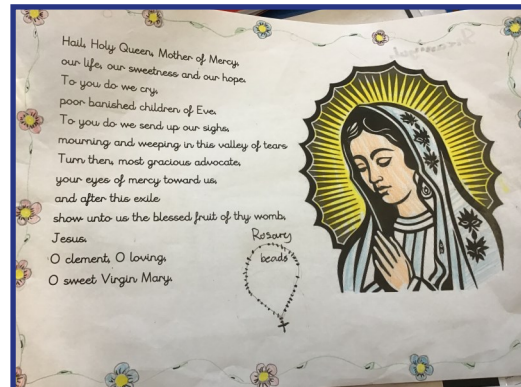 Hail, Holy Queen, Mother of Mercy,
our life, our sweetness and our hope.
To you do we cry,
poor banished children of Eve.
To you do we send up our sighs,
mourning and weeping in this valley of tears
Turn then, most gracious advocate,
your eyes of mercy toward us,
and after this exile
show unto us the blessed fruit of thy womb,
Jesus.
O clement, O loving,
O sweet Virgin Mary.
Rosary
beads